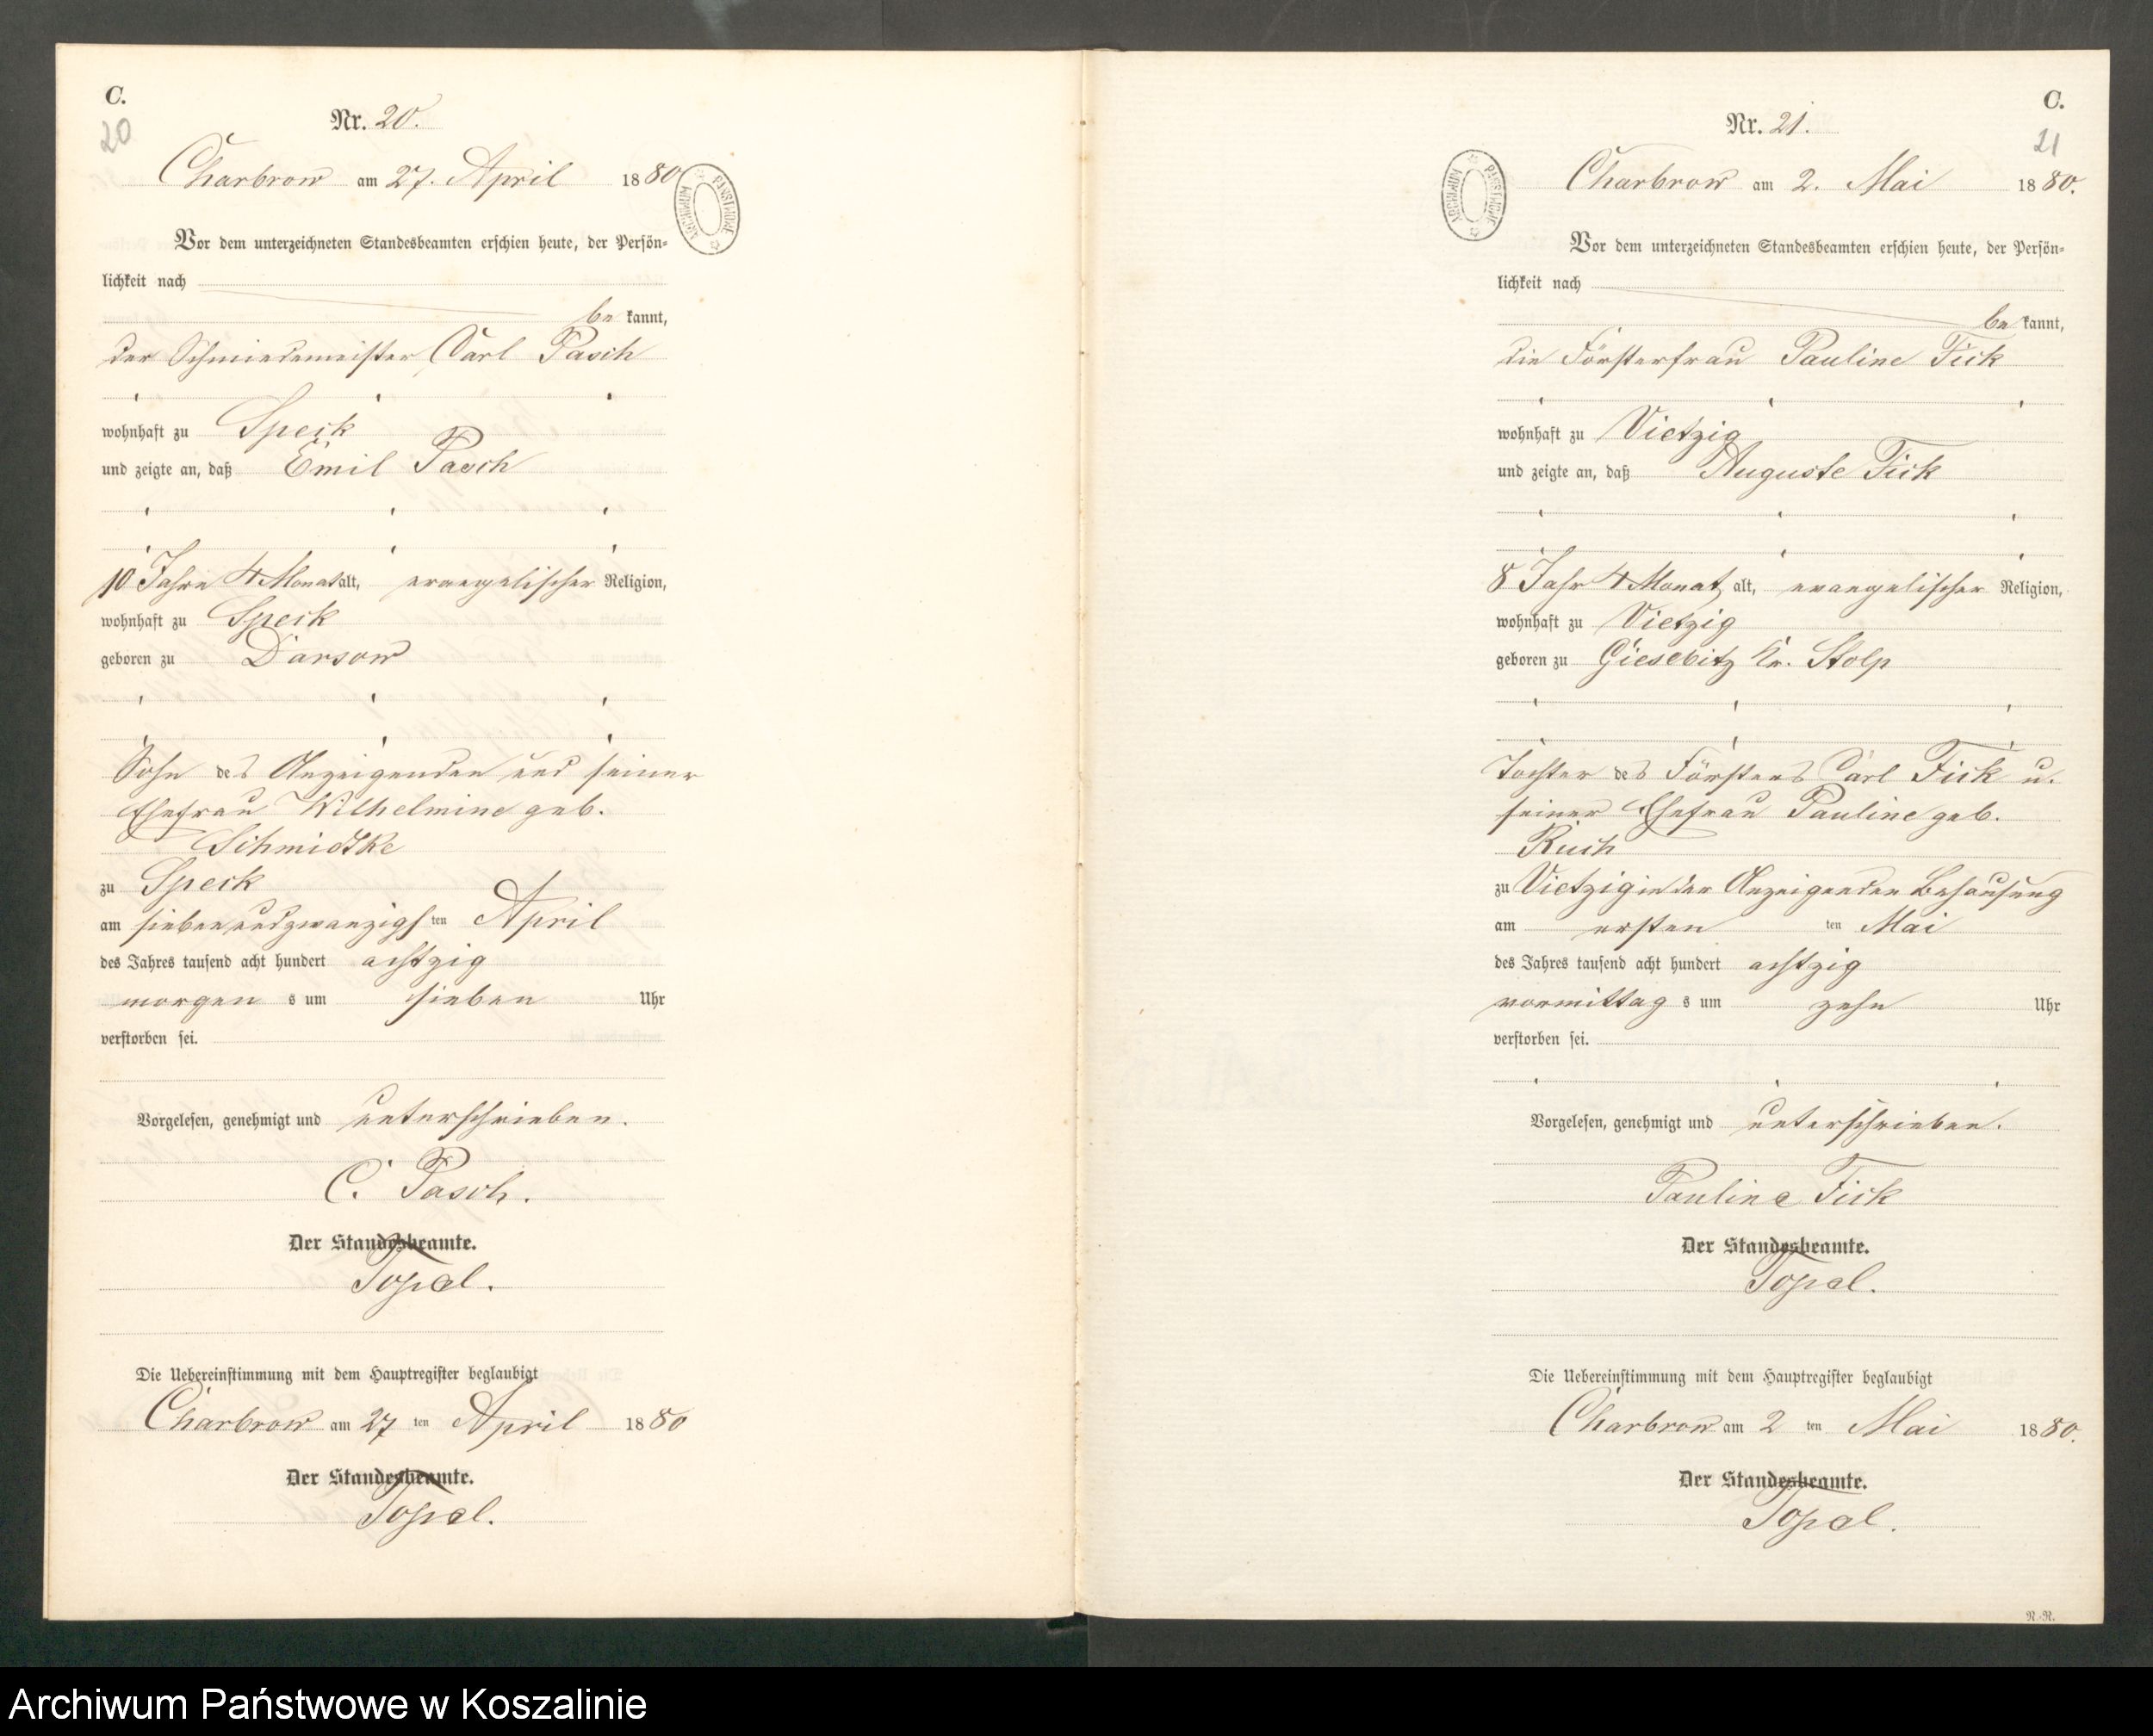 C.
20
Nr. 20.
Charbrow am 27. April 1880
ARCHIWUM PAŃSTWOWE
Vor dem unterzeichneten Standesbeamten erschien heute, der Persön-
lichkeit nach
be kannt,
der Schmiedemeister Carl Pasch
wohnhaft zu Speck
und zeigte an, daß Emil Pasch
10 Jahre 4 Monat alt, evangelischer Religion,
wohnhaft zu Speck
geboren zu Darsow
Sohn des Anzeigenden und seiner
Ehefrau Wilhelmine geb.
Schmidtke
zu Speck
am siebenundzwanzigsten April
des Jahres tausend acht hundert achtzig
morgens um sieben Uhr
verstorben sei.
Vorgelesen, genehmigt und unterschrieben.
C. Pasch.
Der Standesbeamte.
Topel.
Die Uebereinstimmung mit dem Hauptregister beglaubigt
Charbrow am 27 ten April 1880
Der Standesbeamte.
Topel.
C.
21
Nr. 21.
Charbrow am 2. Mai 1880.
ARCHIWUM PAŃSTWOWE
Vor dem unterzeichneten Standesbeamten erschien heute, der Persön-
lichkeit nach
be kannt,
die Försterfrau Pauline Fick
wohnhaft zu Vietzig
und zeigte an, daß Auguste Fick
8 Jahr 4 Monat alt, evangelischer Religion,
wohnhaft zu Vietzig
geboren zu Giesebitz Kr. Stolp
Tochter des Försters Carl Fick u.
seiner Ehefrau Pauline geb.
zu Vietzig in der Anzeigenden Behausung
am ersten ten Mai
des Jahres tausend acht hundert achtzig
vormittags um zehn Uhr
verstorben sei.
Vorgelesen, genehmigt und unterschrieben.
Pauline Fick
Der Standesbeamte.
Topel.
Die Uebereinstimmung mit dem Hauptregister beglaubigt
Charbrow am 2 ten Mai 1880.
Der Standesbeamte.
Topel.
R.-R.
Archiwum Państwowe w Koszalinie